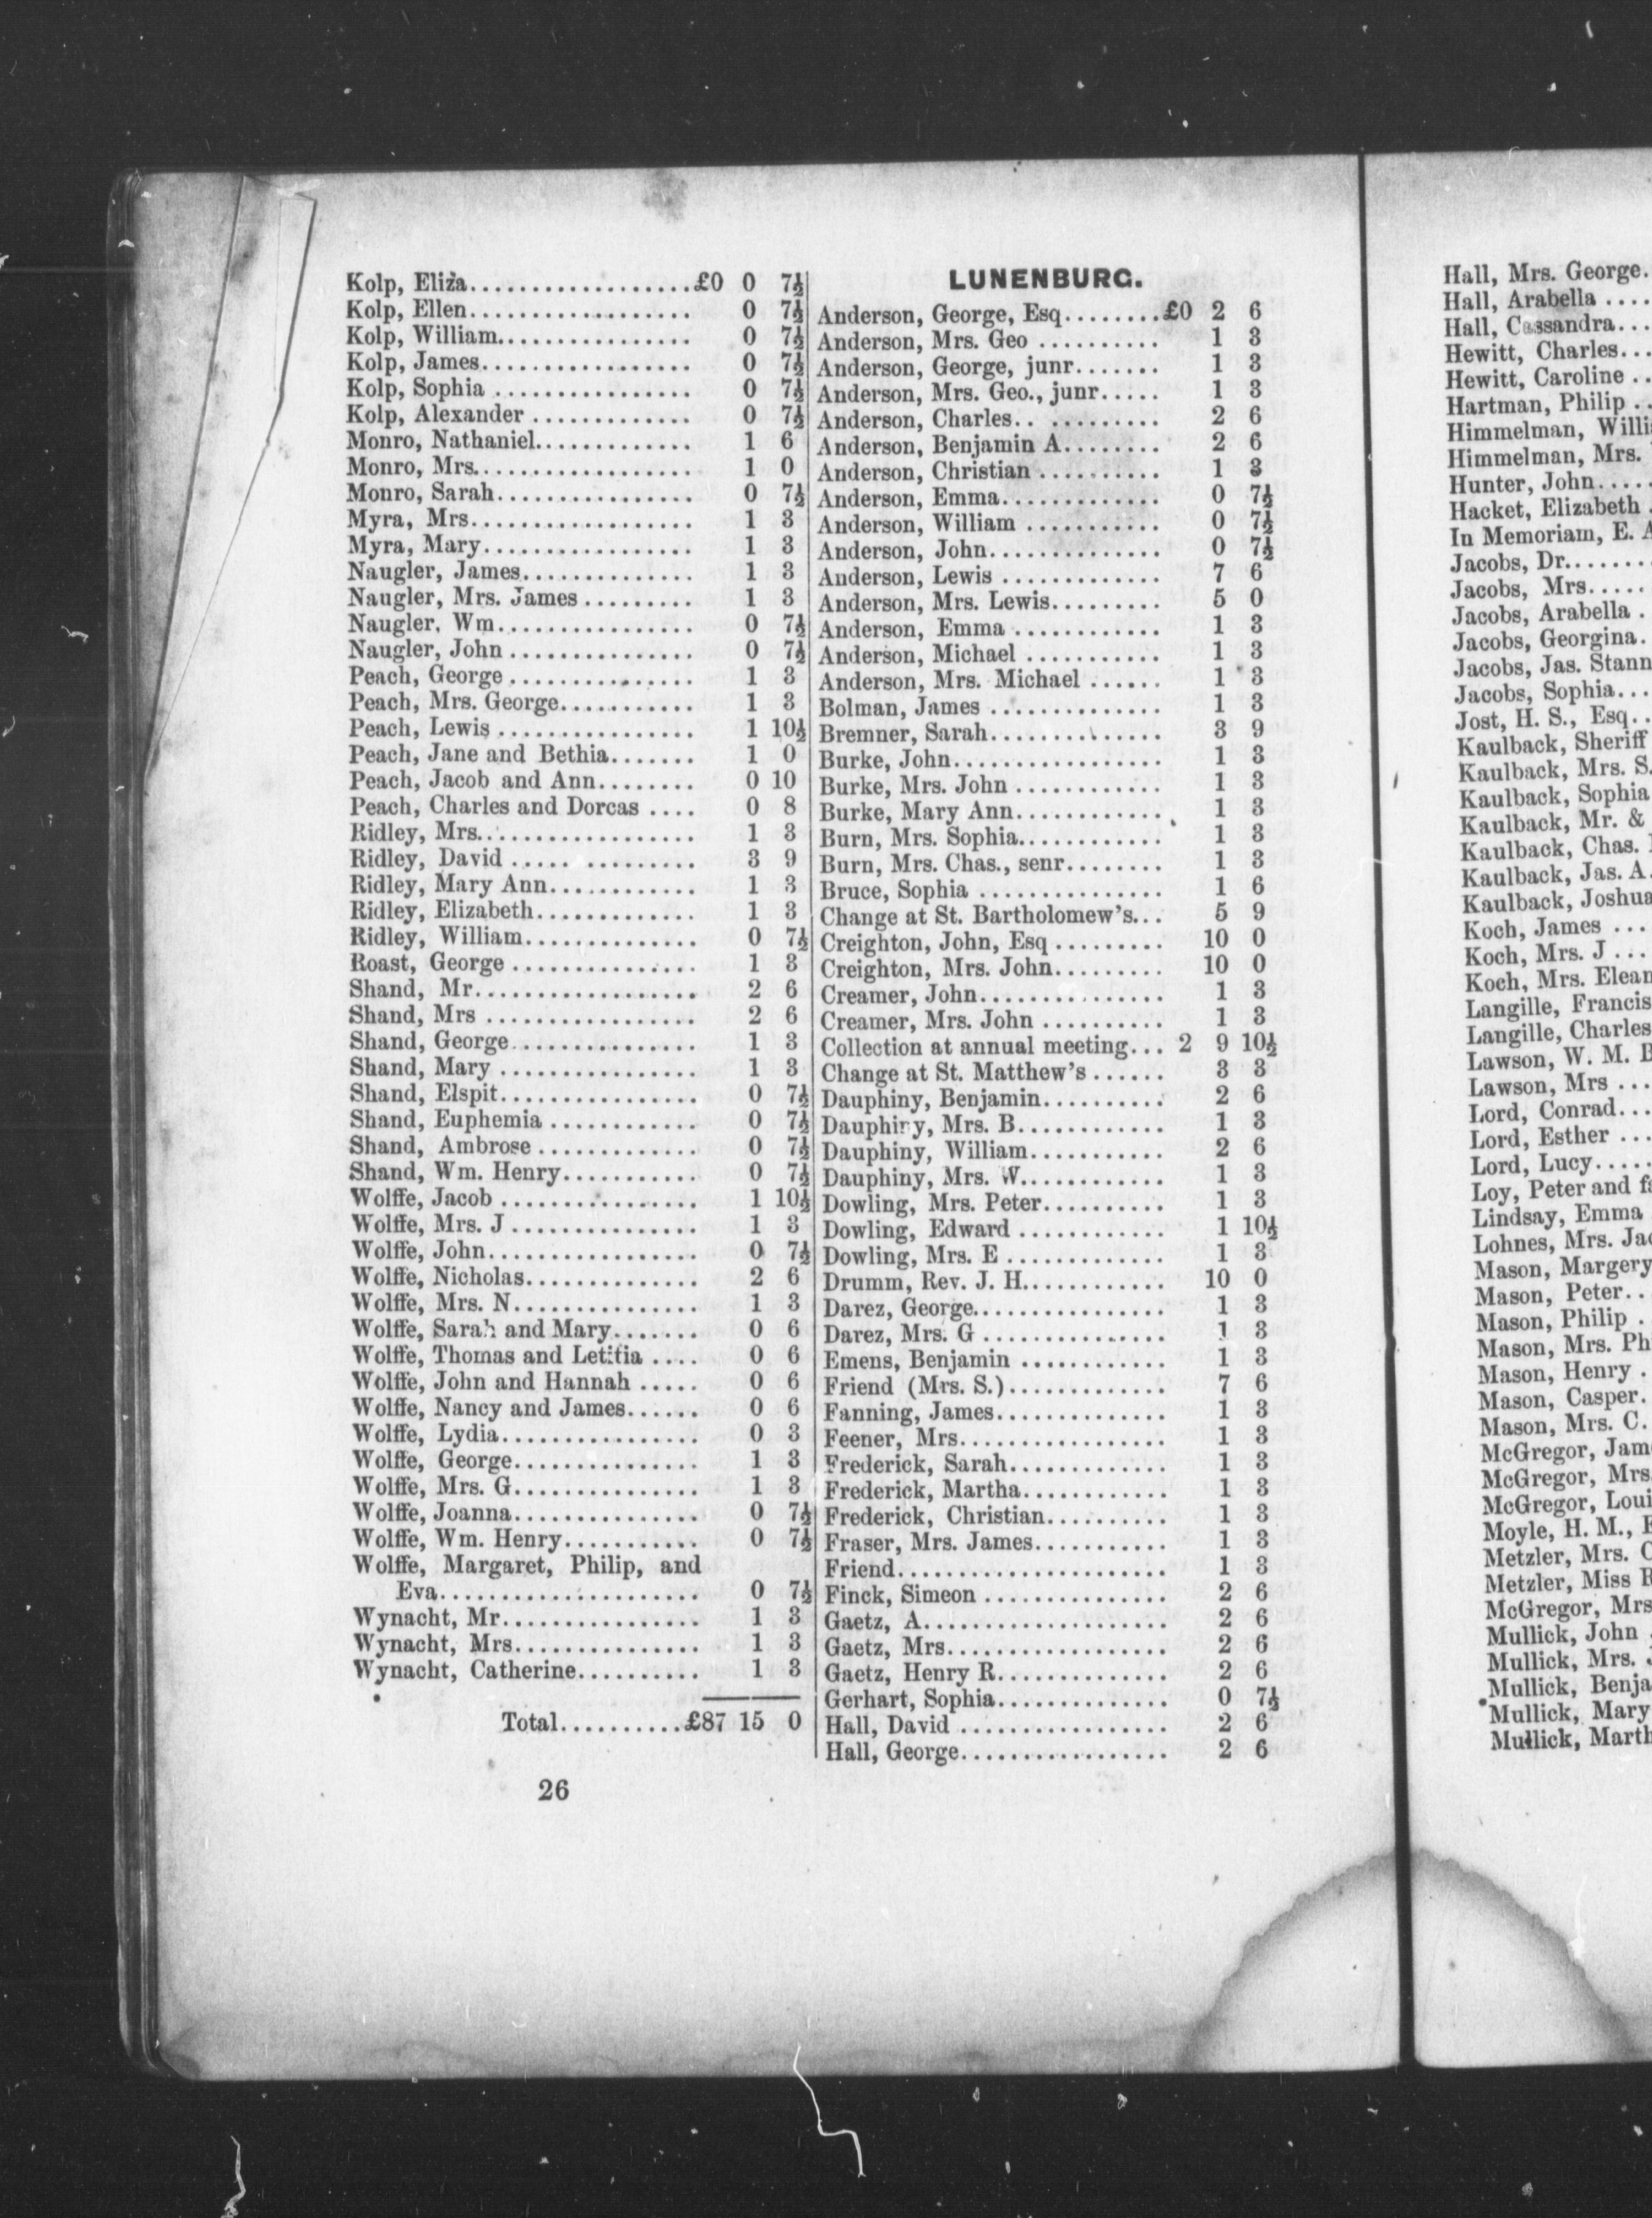 Kolp, Eliza..................£0 0 7½
Kolp, Ellen.................. 0 7½
Kolp, William................ 0 7½
Kolp, James.................. 0 7½
Kolp, Sophia ................ 0 7½
Kolp, Alexander ............. 0 7½
Monro, Nathaniel............. 1 6
Monro, Mrs................... 1 0
Monro, Sarah................. 0 7½
Myra, Mrs.................... 1 3
Myra, Mary................... 1 3
Naugler, James............... 1 3
Naugler, Mrs. James ......... 1 3
Naugler, Wm.................. 0 7½
Naugler, John ............... 0 7½
Peach, George ............... 1 3
Peach, Mrs. George........... 1 3
Peach, Lewis ................ 1 10½
Peach, Jane and Bethia....... 1 0
Peach, Jacob and Ann........ 0 10
Peach, Charles and Dorcas .... 0 8
Ridley, Mrs.................. 1 3
Ridley, David ............... 3 9
Ridley, Mary Ann............ 1 3
Ridley, Elizabeth............. 1 3
Ridley, William.............. 0 7½
Roast, George ............... 1 3
Shand, Mr................... 2 6
Shand, Mrs .................. 2 6
Shand, George............... 1 3
Shand, Mary ................ 1 3
Shand, Elspit................ 0 7½
Shand, Euphemia ............ 0 7½
Shand, Ambrose ............. 0 7½
Shand, Wm. Henry........... 0 7½
Wolffe, Jacob ............... 1 10½
Wolffe, Mrs. J ............... 1 3
Wolffe, John................. 0 7½
Wolffe, Nicholas.............. 2 6
Wolffe, Mrs. N............... 1 3
Wolffe, Sarah and Mary....... 0 6
Wolffe, Thomas and Letitia .... 0 6
Wolffe, John and Hannah ..... 0 6
Wolffe, Nancy and James...... 0 6
Wolffe, Lydia................ 0 3
Wolffe, George............... 1 3
Wolffe, Mrs. G............... 1 3
Wolffe, Joanna............... 0 7½
Wolffe, Wm. Henry........... 0 7½
Wolffe, Margaret, Philip, and
Eva..................... 0 7½
Wynacht, Mr................ 1 3
Wynacht, Mrs............... 1 3
Wynacht, Catherine.......... 1 3
Total..........£87 15 0
26
LUNENBURG.
Anderson, George, Esq........£0 2 6
Anderson, Mrs. Geo .......... 1 3
Anderson, George, junr....... 1 3
Anderson, Mrs. Geo., junr..... 1 3
Anderson, Charles.. ......... 2 6
Anderson, Benjamin A........ 2 6
Anderson, Christian .......... 1 3
Anderson, Emma............. 0 7½
Anderson, William ........... 0 7½
Anderson, John.............. 0 7½
Anderson, Lewis ............. 7 6
Anderson, Mrs. Lewis......... 5 0
Anderson, Emma ............ 1 3
Anderson, Michael ........... 1 3
Anderson, Mrs. Michael ...... 1 3
Bolman, James .............. 1 3
Bremner, Sarah.............. 3 9
Burke, John................. 1 3
Burke, Mrs. John ............ 1 3
Burke, Mary Ann............ 1 3
Burn, Mrs. Sophia............ 1 3
Burn, Mrs. Chas., senr........ 1 3
Bruce, Sophia ............... 1 6
Change at St. Bartholomew's... 5 9
Creighton, John, Esq ......... 10 0
Creighton, Mrs. John......... 10 0
Creamer, John............... 1 3
Creamer, Mrs. John .......... 1 3
Collection at annual meeting... 2 9 10½
Change at St. Matthew's ...... 3 3
Dauphiny, Benjamin.......... 2 6
Dauphiny, Mrs. B............ 1 3
Dauphiny, William........... 2 6
Dauphiny, Mrs. W............ 1 3
Dowling, Mrs. Peter.......... 1 3
Dowling, Edward ............ 1 10½
Dowling, Mrs. E ............. 1 3
Drumm, Rev. J. H............ 10 0
Darez, George................ 1 3
Darez, Mrs. G ............... 1 3
Emens, Benjamin ............ 1 3
Friend (Mrs. S.)............. 7 6
Fanning, James.............. 1 3
Feener, Mrs................. 1 3
Frederick, Sarah............. 1 3
Frederick, Martha............ 1 3
Frederick, Christian.......... 1 3
Fraser, Mrs. James........... 1 3
Friend...................... 1 3
Finck, Simeon ............... 2 6
Gaetz, A.................... 2 6
Gaetz, Mrs.................. 2 6
Gaetz, Henry R.............. 2 6
Gerhart, Sophia.............. 0 7½
Hall, David ................. 2 6
Hall, George................. 2 6
Hall, Mrs. George.
Hall, Arabella ....
Hall, Cassandra...
Hewitt, Charles...
Hewitt, Caroline ..
Hartman, Philip ..
Himmelman,
Himmelman, Mrs.
Hunter, John.....
Hacket, Elizabeth .
In Memoriam, E.
Jacobs, Dr.......
Jacobs, Mrs.....
Jacobs, Arabella .
Jacobs, Georgina.
Jacobs, Jas.
Jacobs, Sophia...
Jost, H. S., Esq..
Kaulback, Sheriff
Kaulback, Mrs. S.
Kaulback, Sophia
Kaulback, Mr. &
Kaulback, Chas.
Kaulback, Jas. A.
Kaulback, Joshua
Koch, James ...
Koch, Mrs. J ...
Koch, Mrs.
Langille, Francis
Langille, Charles
Lawson, W. M.
Lawson, Mrs ...
Lord, Conrad...
Lord, Esther ...
Lord, Lucy.....
Loy, Peter and
Lindsay, Emma
Lohnes, Mrs.
Mason, Margery
Mason, Peter..
Mason, Philip .
Mason, Mrs.
Mason, Henry .
Mason, Casper.
Mason, Mrs. C.
McGregor,
McGregor, Mrs
McGregor,
Moyle, H. M.,
Metzler, Mrs.
Metzler, Miss
McGregor, Mrs
Mullick, John .
Mullick, Mrs.
Mullick,
Mullick, Mary
Mullick,